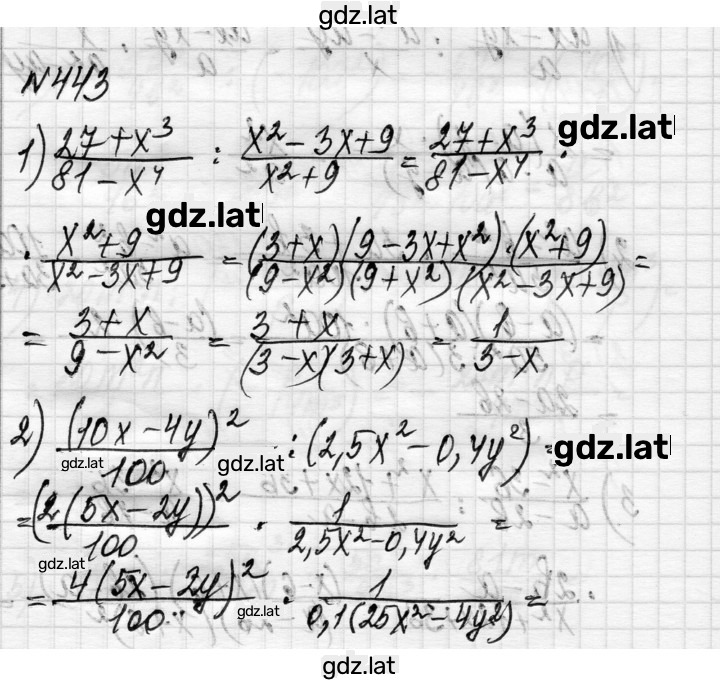 gdz.lat
N443
1) (27+x³)/(81-x⁴) : (x²-3x+9)/(x²+9) = (27+x³)/(81-x⁴) · gdz.lat
gdz.lat
· (x²+9)/(x²-3x+9) = ((3+x)(9-3x+x²)·(x²+9))/((9-x²)(9+x²)(x²-3x+9)) =
= (3+x)/(9-x²) = (3+x)/((3-x)(3+x)) = 1/(3-x)
2) (10x-4y)²/100 : (2,5x²-0,4y²) = gdz.lat
gdz.lat gdz.lat
= (2(5x-2y))²/100 · 1/(2,5x²-0,4y²) =
gdz.lat
= 4(5x-2y)²/100 · 1/(0,1(25x²-4y²)) =
gdz.lat
gdz.lat